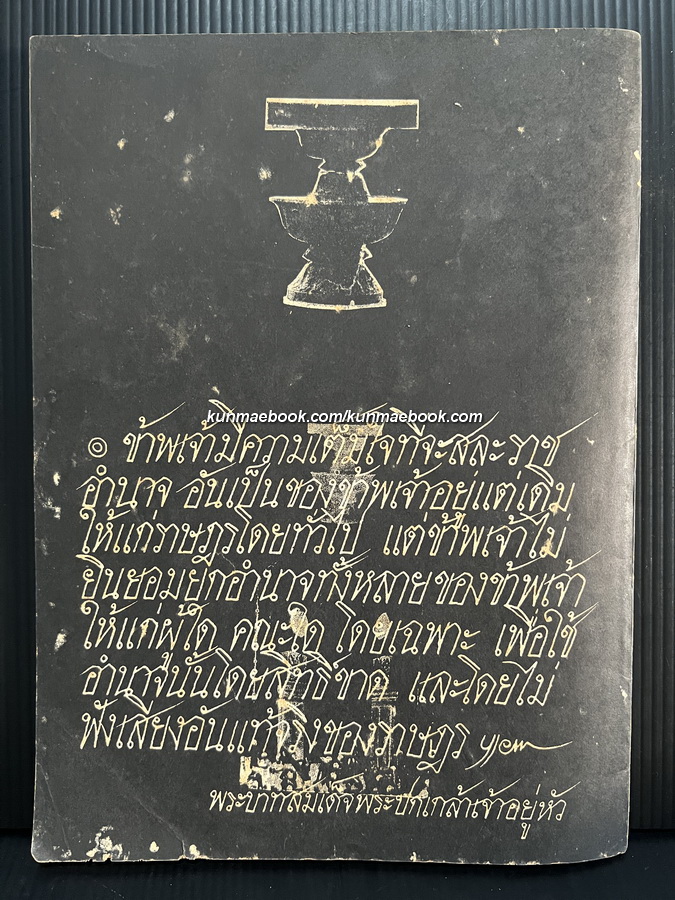 kunmaebook.com/kunmaebook.com
๏ ข้าพเจ้ามีความเต็มใจที่จะสละราช
อำนาจ อันเป็นของข้าพเจ้าอยู่แต่เดิม
ให้แก่ราษฎรโดยทั่วไป แต่ข้าพเจ้าไม่
ยินยอมยกอำนาจทั้งหลายของข้าพเจ้า
ให้แก่ผู้ใด คณะใด โดยเฉพาะ เพื่อใช้
อำนาจนั้นโดยสิทธิขาด และโดยไม่
ฟังเสียงอันแท้จริงของราษฎร
พระบาทสมเด็จพระปกเกล้าเจ้าอยู่หัว